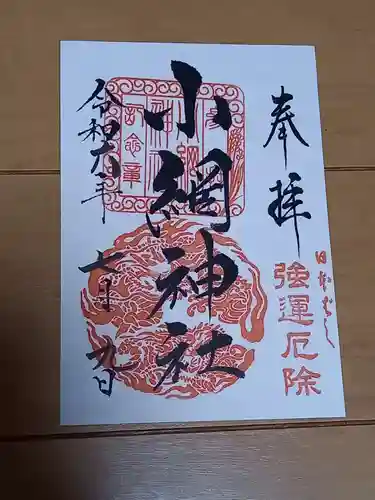 奉拝
日本ばし
強運厄除
小網神社
令和六年
七月九日